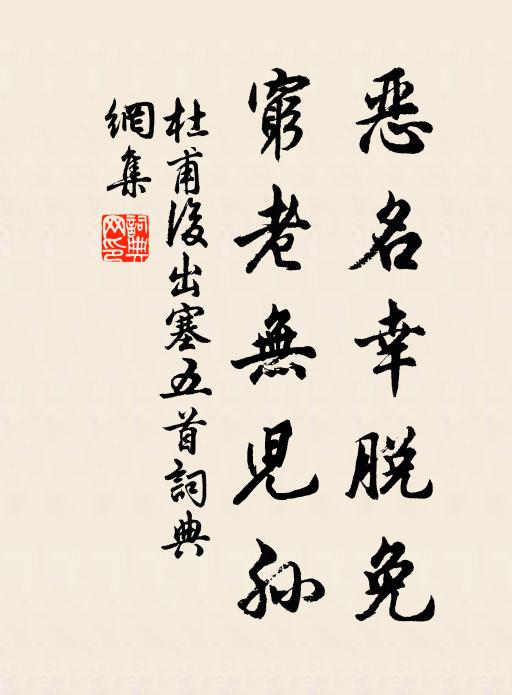 恶名幸脱免
窮老無児孙
杜甫後出塞五首詞典
網集
詞典
网印